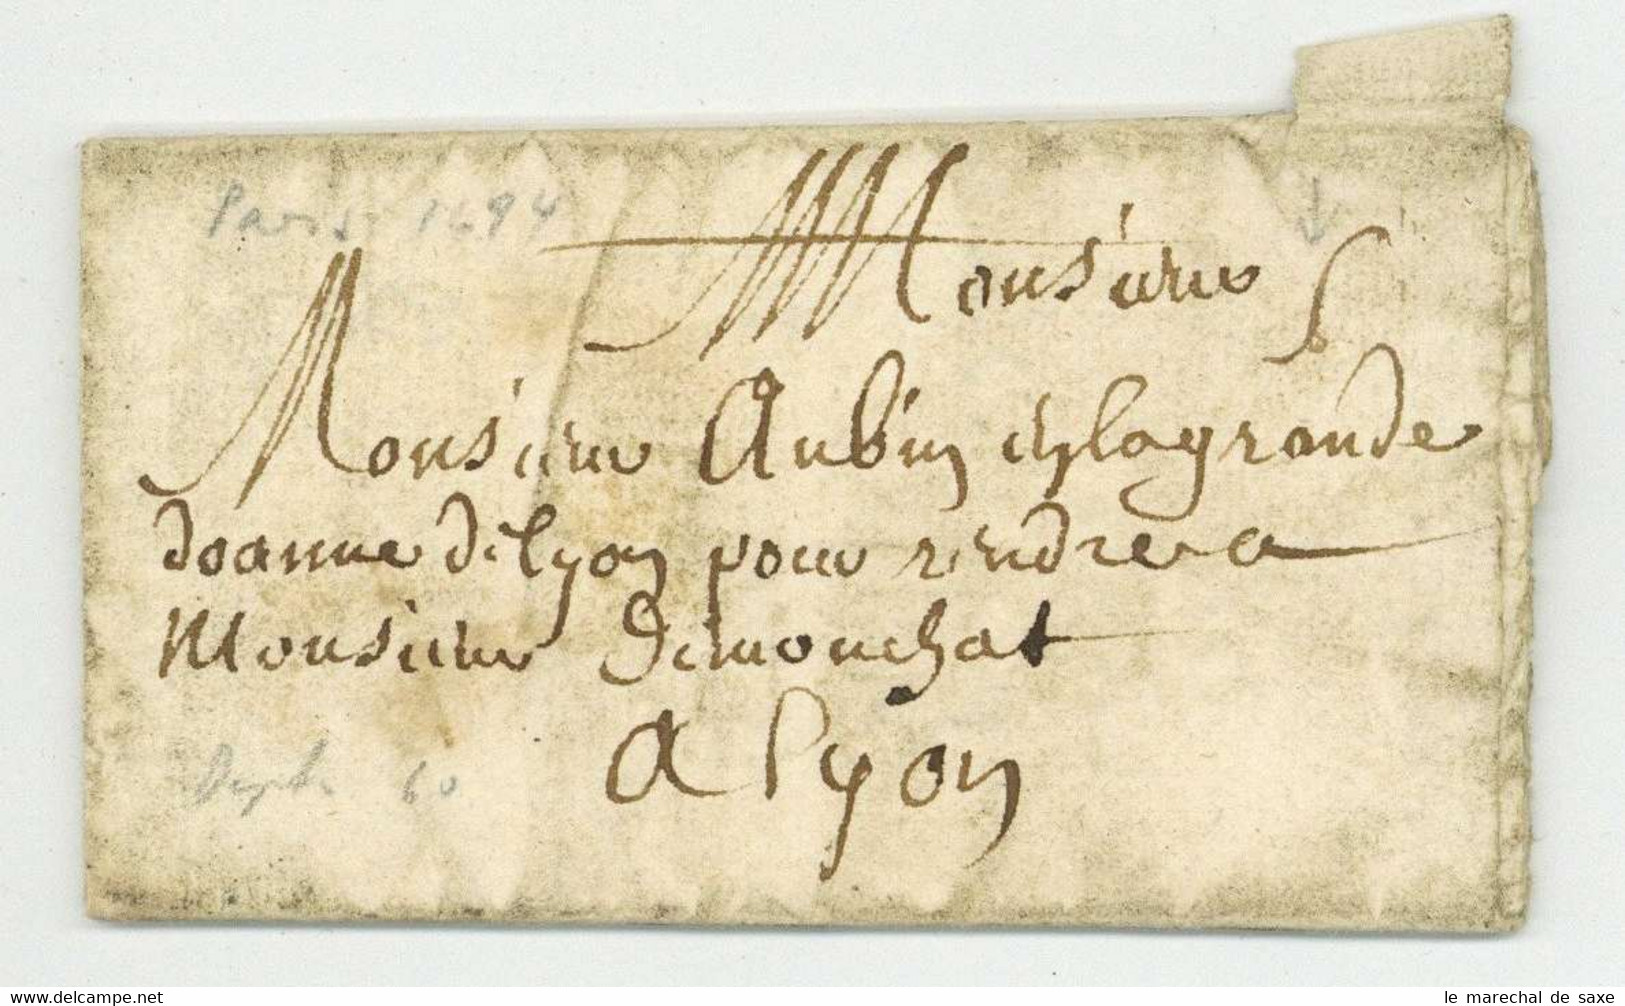 Paris 1694
Monsieur
Monsieur Aubin en la grande
doanne de lyon pour rendre a
Monsieur demonchat
a lyon
60
le marechal de saxe